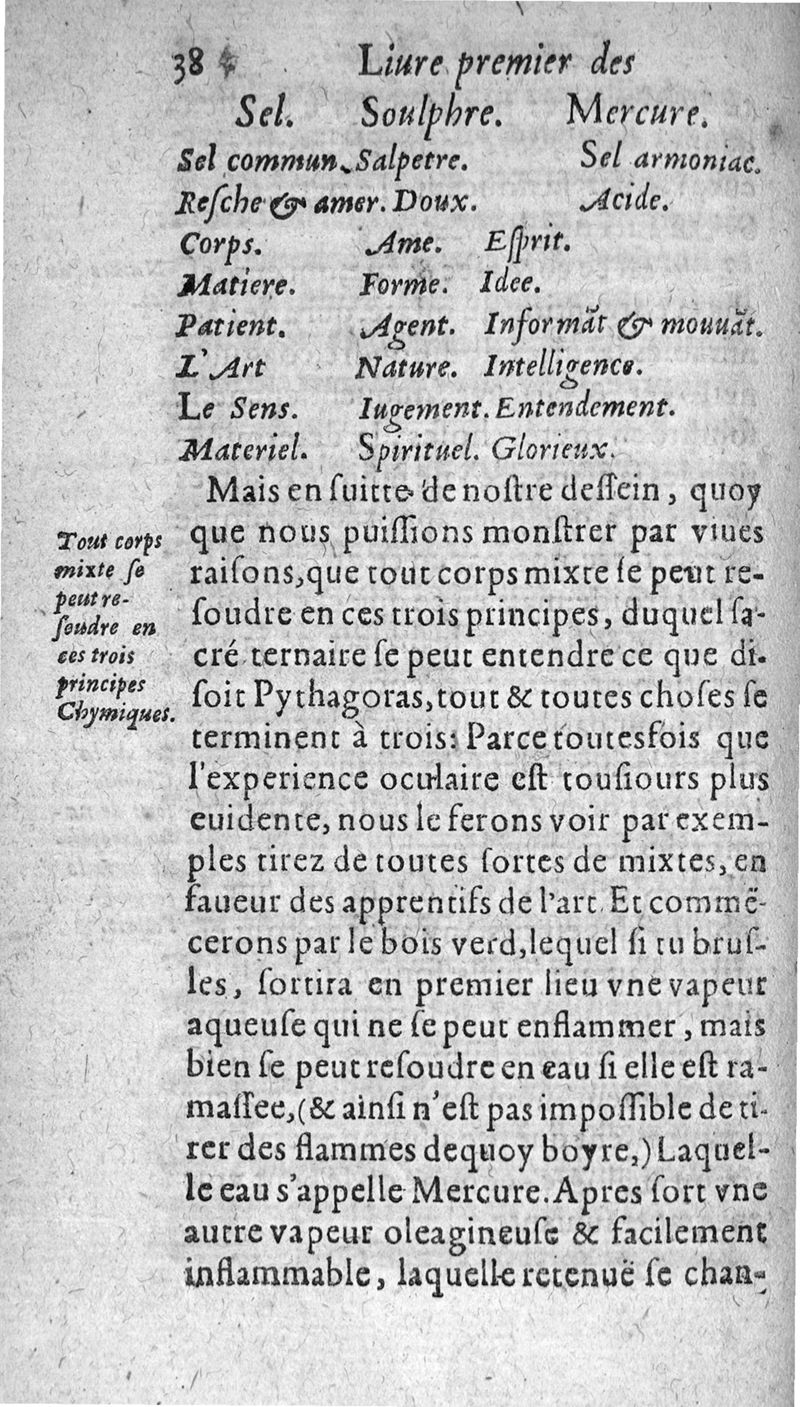 38 Liure premier des
Sel. Soulphre. Mercure.
Sel commun. Salpetre. Sel armoniac.
Resche & amer. Doux. Acide.
Corps. Ame. Esprit.
Matiere. Forme. Idee.
Patient. Agent. Informãt & mouuãt.
L'Art Nature. Intelligence.
Le Sens. Iugement. Entendement.
Materiel. Spirituel. Glorieux.
Mais en ſuitte de noſtre deſſein, quoy
que nous puiſſions monſtrer par viues
raiſons, que tout corps mixte ſe peut re-
ſoudre en ces trois principes, duquel ſa-
cré ternaire ſe peut entendre ce que di-
ſoit Pythagoras, tout & toutes choſes ſe
terminent à trois: Parce toutesfois que
l'experience oculaire eſt touſiours plus
euidente, nous le ferons voir par exem-
ples tirez de toutes ſortes de mixtes, en
faueur des apprentifs de l'art. Et commẽ-
cerons par le bois verd, lequel ſi tu bruſ-
les, ſortira en premier lieu vne vapeur
aqueuſe qui ne ſe peut enflammer, mais
bien ſe peut reſoudre en eau ſi elle eſt ra-
maſſee, (& ainſi n'eſt pas impoſſible de ti-
rer des flammes dequoy boyre,) Laquel-
le eau s'appelle Mercure. Apres ſort vne
autre vapeur oleagineuſe & facilement
inflammable, laquelle retenuë ſe chan-
Tout corps
mixte ſe
peut re-
ſoudre en
ces trois
principes
Chymiques.